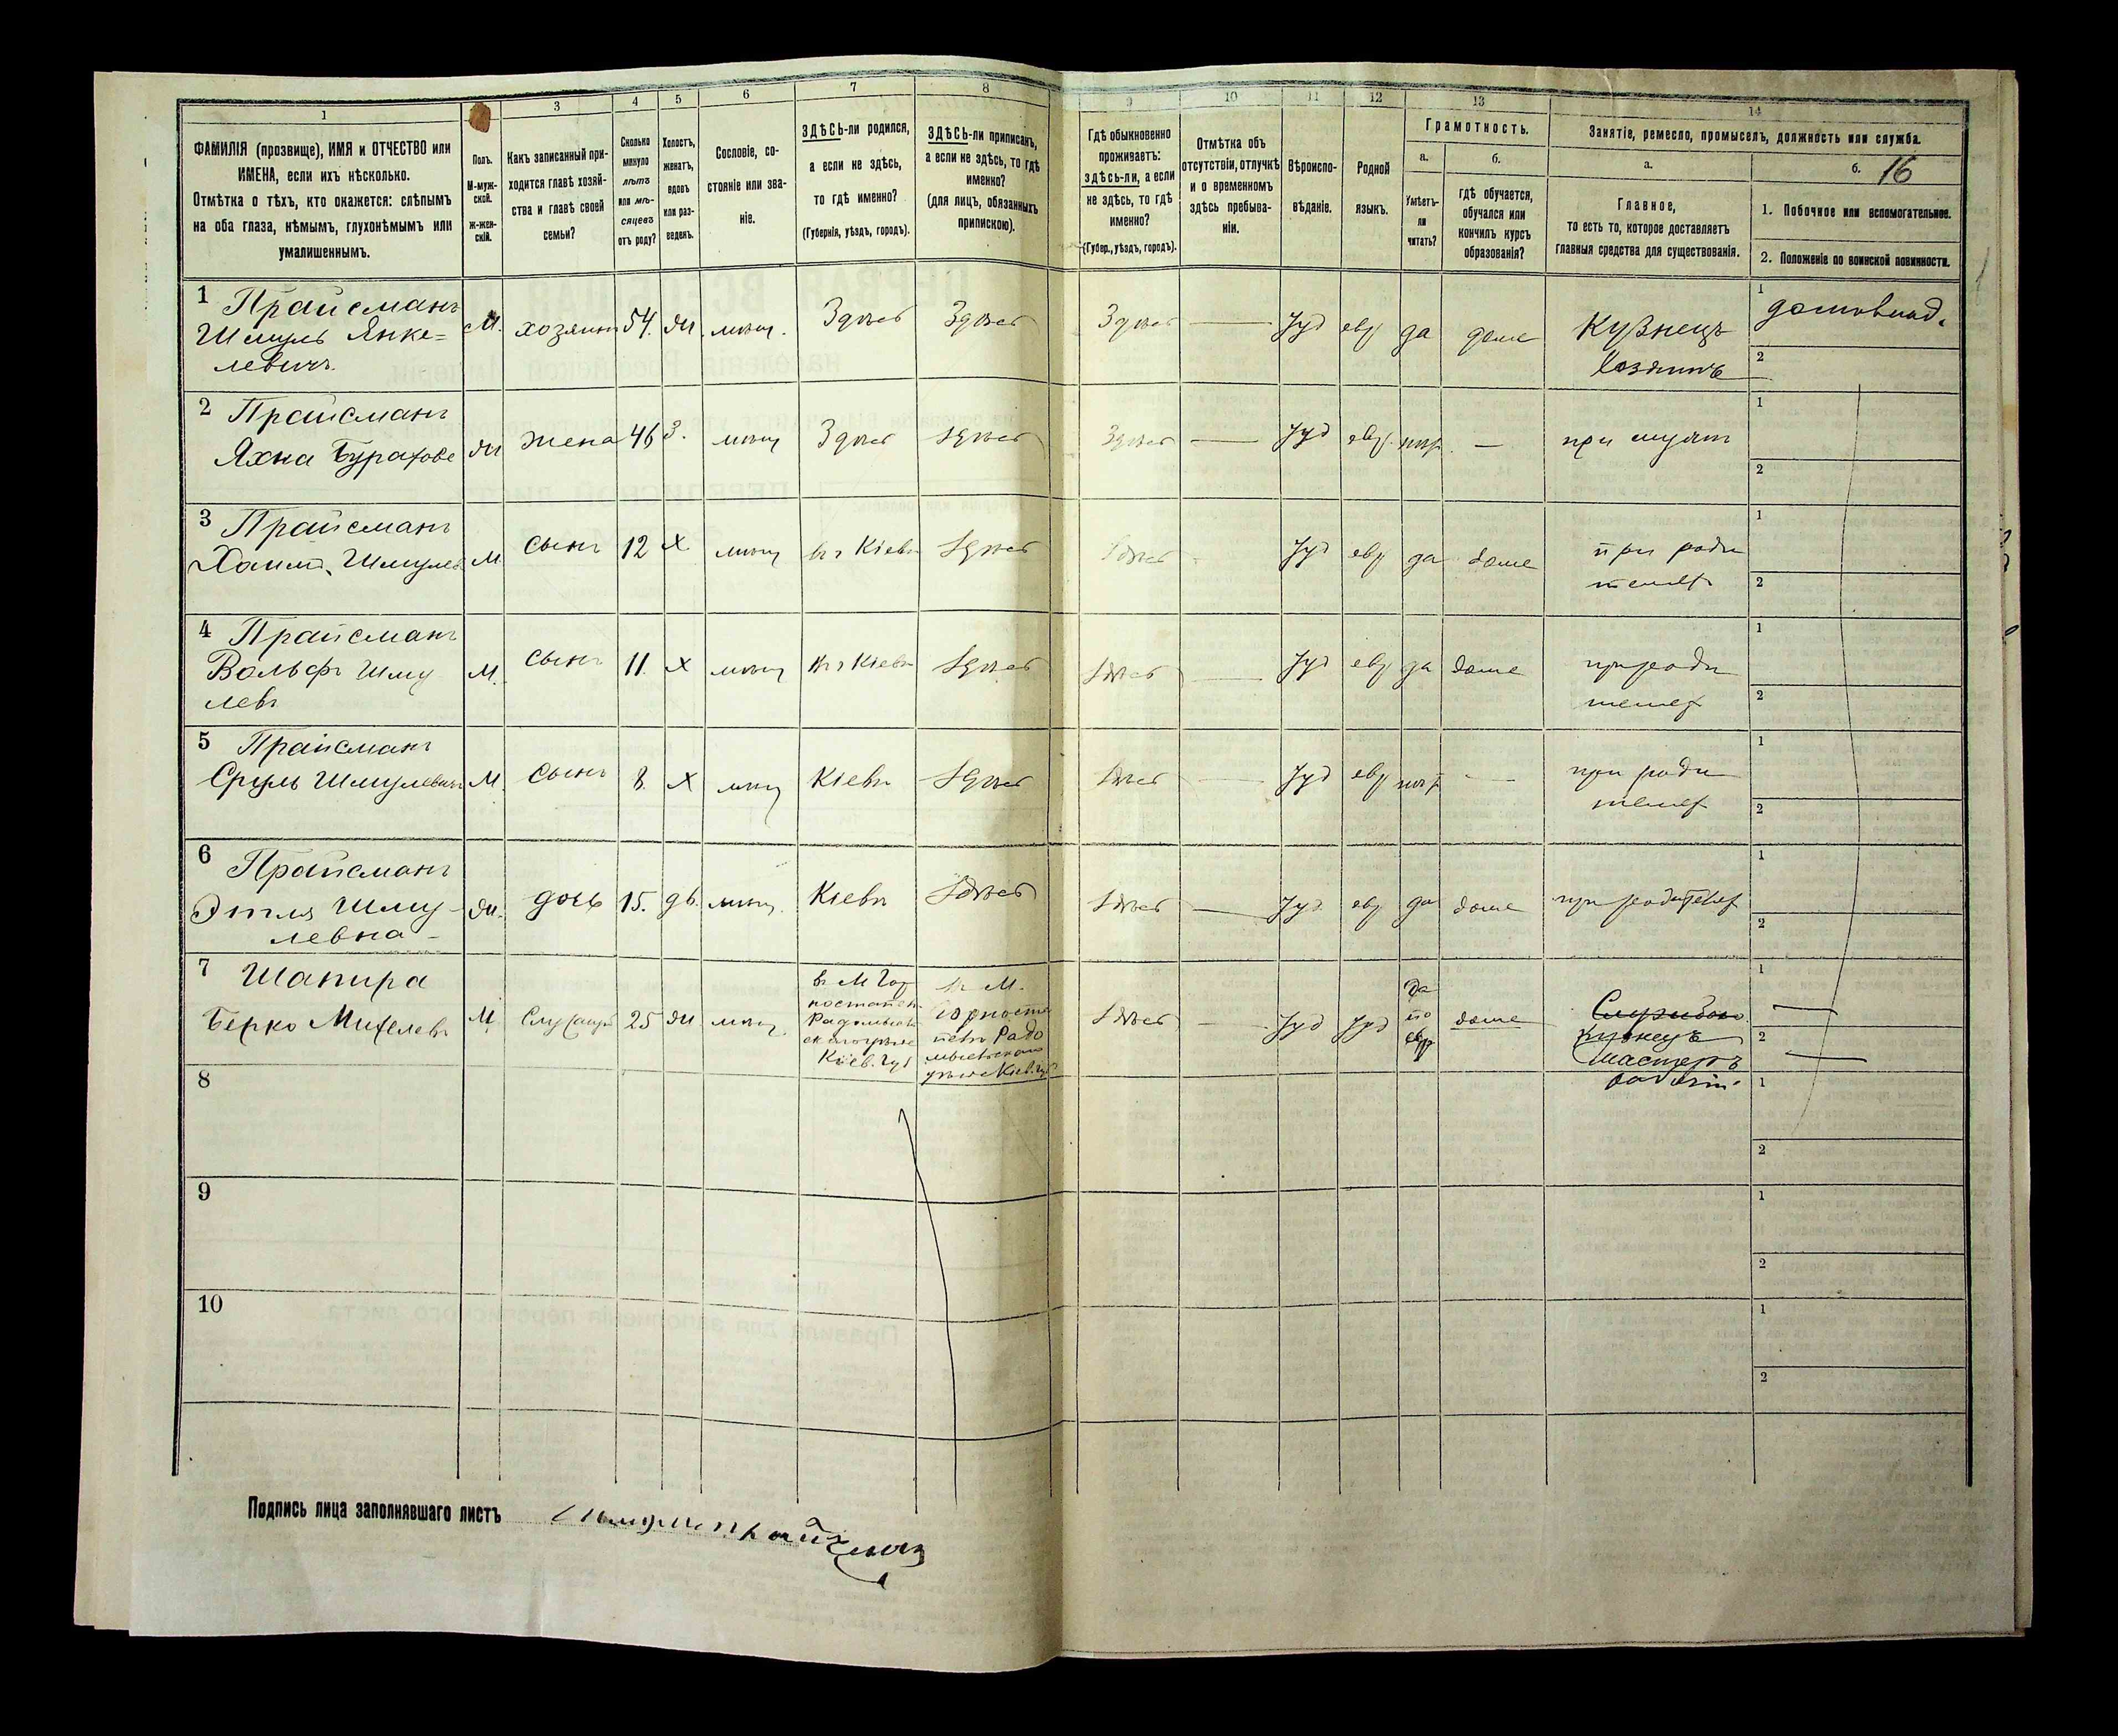 1
2
3
4
5
6
7
8
9
10
11
12
13
14
ФАМИЛІЯ (прозвище), ИМЯ и ОТЧЕСТВО или
ИМЕНА, если ихъ нѣсколько.
Отмѣтка о тѣхъ, кто окажется: слѣпымъ
на оба глаза, нѣмымъ, глухонѣмымъ или
умалишеннымъ.
Полъ.
М-муж-
ской.
Ж-жен-
скій.
Какъ записанный при-
ходится главѣ хозяй-
ства и главѣ своей
семьи?
Сколько
минуло
лѣтъ
или мѣ-
сяцевъ
отъ роду?
Холостъ,
женатъ,
вдовъ
или раз-
веденъ.
Сословіе, со-
стояніе или зва-
ніе.
ЗДѢСЬ-ли родился,
а если не здѣсь,
то гдѣ именно?
(Губернія, уѣздъ, городъ).
ЗДѢСЬ-ли приписанъ,
а если не здѣсь, то гдѣ
именно?
(для лицъ, обязанныхъ
припискою).
Гдѣ обыкновенно
проживаетъ:
здѣсь-ли, а если
не здѣсь, то гдѣ
именно?
(Губер., уѣздъ, городъ).
Отмѣтка объ
отсутствіи, отлучкѣ
и о временномъ
здѣсь пребыва-
ніи.
Вѣроиспо-
вѣданіе.
Родной
языкъ.
Грамотность.
а.
Умѣетъ-
ли
читать?
б.
Гдѣ обучается,
обучался или
кончилъ курсъ
образованія?
Занятіе, ремесло, промыселъ, должность или служба.
а.
Главное,
то есть то, которое доставляетъ
главныя средства для существованія.
б.
16
1. Побочное или вспомогательное.
2. Положеніе по воинской повинности.
1
Прайсманъ
Шмуль Янке=
левичъ.
М.
хозяинъ
54.
жн.
мѣщ.
Здѣсь
Здѣсь
Здѣсь
Іуд
евр
да
дома
Кузнецъ
хозяинъ
1
домовлад.
2
2
Прайсманъ
Яхна
жн
жена
46
З.
мѣщ
Здѣсь
Здѣсь
Здѣсь
Іуд
евр.
—
при мужѣ
1
2
3
Прайсманъ
Хаимъ Шмулев
М
сынъ
12
х
мѣщ
въ г Кіевѣ
Здѣсь
Здѣсь
Іуд
евр
да
дома
при роди
телях
1
2
4
Прайсманъ
Вольфъ Шму
левъ
М.
сынъ
11.
х
мѣщ
въ г Кіевѣ
Здѣсь
Здѣсь
Іуд
евр
да
дома
при роди
телях
1
2
5
Прайсманъ
Сруль Шмулевичъ
М.
сынъ
8.
х
мѣщ
Кіевѣ
Здѣсь
Здѣсь
Іуд
евр
—
при роди
телях
1
2
6
Прайсманъ
Этля Шму-
левна
жн.
дочь
15.
дѣ.
мѣщ.
Кіевѣ
Здѣсь
Здѣсь
Іуд.
евр
да
дома
при родителях
1
2
7
Шапира
Берко
М
25
жн
мѣщ.
в М Гор
ностайп.
Кіев. губ
в М.
Горноста
пелѣ Радо
мысльскаго
уѣзда Кіев. губ
Здѣсь
Іуд
Іуд
да
по
евр
дома
кузнецъ
мастеръ
1
2
8
1
2
9
1
2
10
1
2
Подпись лица заполнявшаго листъ